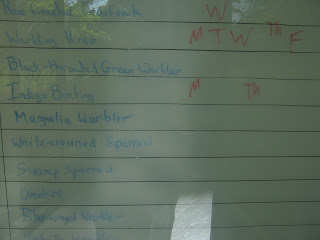 Rose-breasted Grosbeak W
Warbling Vireo M T W TH F
Black-throated Green Warbler
Indigo Bunting M TH
Magnolia Warbler
White-crowned Sparrow
Swamp Sparrow
Blue-winged Warbler
Warbler